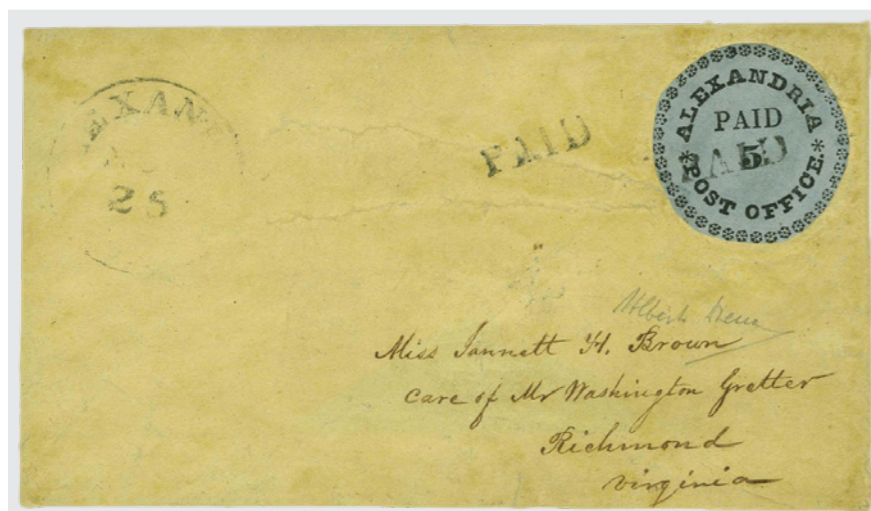 EXAN
25
PAID
ALEXANDRIA
PAID
5
PAID
* POST OFFICE. *
Miss Jannett H. Brown
care of Mr Washington Gretter
Richmond
virginia